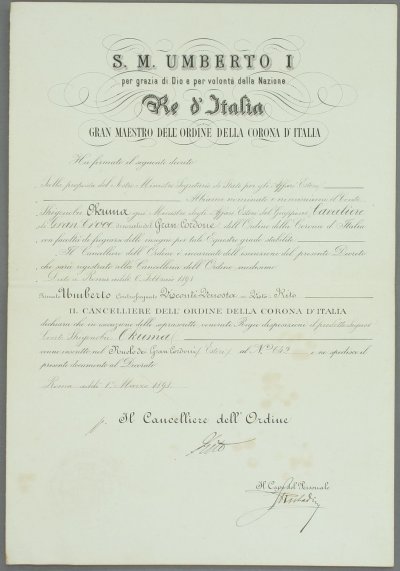 S. M. UMBERTO I
per grazia di Dio e per volontà della Nazione
Re d'Italia
GRAN MAESTRO DELL'ORDINE DELLA CORONA D'ITALIA
Ha firmato il seguente decreto
Sulla proposta del Nostro Ministro Segretario di Stato per gli Affari Esteri
Abbiamo nominato e nominiamo il Conte
Okuma già Ministro degli Affari Esteri del Giappone Cavaliere
di Gran Croce decorato del Gran Cordone dell'Ordine della Corona d'Italia
con facoltà di fregiarsi delle insegne per tale Equestre grado stabilite
Il Cancelliere dell'Ordine è incaricato dell'esecuzione del presente Decreto
che sarà registrato alla Cancelleria dell'Ordine medesimo
Dato a Roma addì Febbraio
Firmato Umberto Controfirmato Visconti Venosta Visto
IL CANCELLIERE DELL'ORDINE DELLA CORONA D'ITALIA
dichiara che in esecuzione delle soprascritte Regie disposizioni il predetto
Conte Okuma
venne inscritto nel Ruolo dei Gran Cordoni (Esteri) al N.° e ne spedisce il
presente documento al Decorato
Roma addì Marzo
p. Il Cancelliere dell'Ordine
Il Capo del Personale